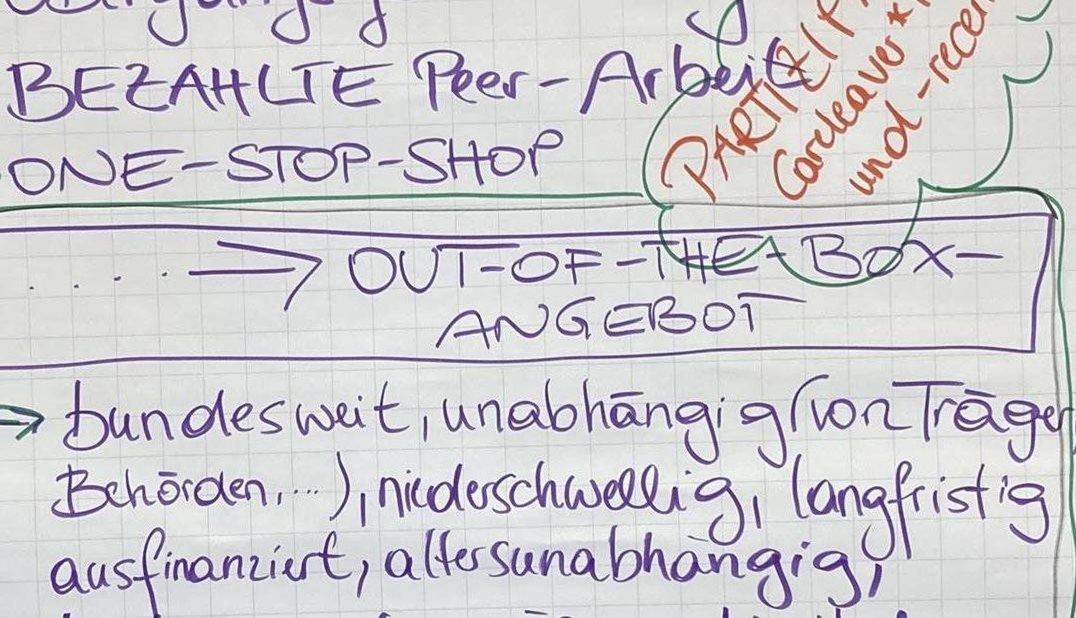 BEZAHLTE Peer-Arbeit
ONE-STOP-SHOP
Careleaver*
und -rece
... → OUT-OF-THE-BOX-
ANGEBOT
→ bundesweit, unabhängig (von Träger
Behörden,...), niederschwellig, langfristig
ausfinanziert, altersunabhängig,